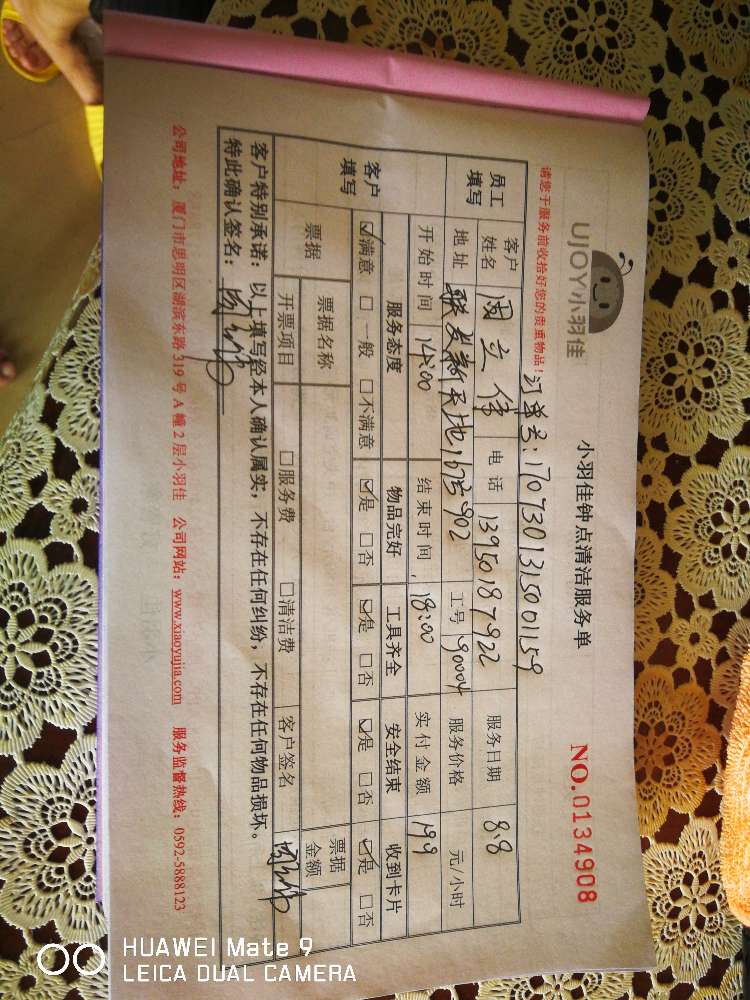 UJOY小羽佳
小羽佳钟点清洁服务单
NO.0134908
请您于服务前收拾好您的贵重物品！
订单号：1707301315001159
员工填写 客户姓名 周立伟 电话 13950187922 服务日期 8.8
地址 联发新天地167号902 工号 90004 服务价格 元/小时
开始时间 14:00 结束时间 18:00 实付金额 199
客户填写 服务态度 物品完好 工具齐全 安全结束 收到卡片
☑满意 □一般 □不满意 ☑是 □否 ☑是 □否 ☑是 □否 ☑是 □否
票据 票据名称 票据金额
开票项目 □服务费 □清洁费 客户签名
客户特别承诺：以上填写经本人确认属实，不存在任何纠纷，不存在任何物品损坏。
特此确认签名：
公司地址：厦门市思明区湖滨东路319号A幢2层小羽佳 公司网站：www.xiaoyujia.com 服务监督热线：0592-5888123
HUAWEI Mate 9
LEICA DUAL CAMERA